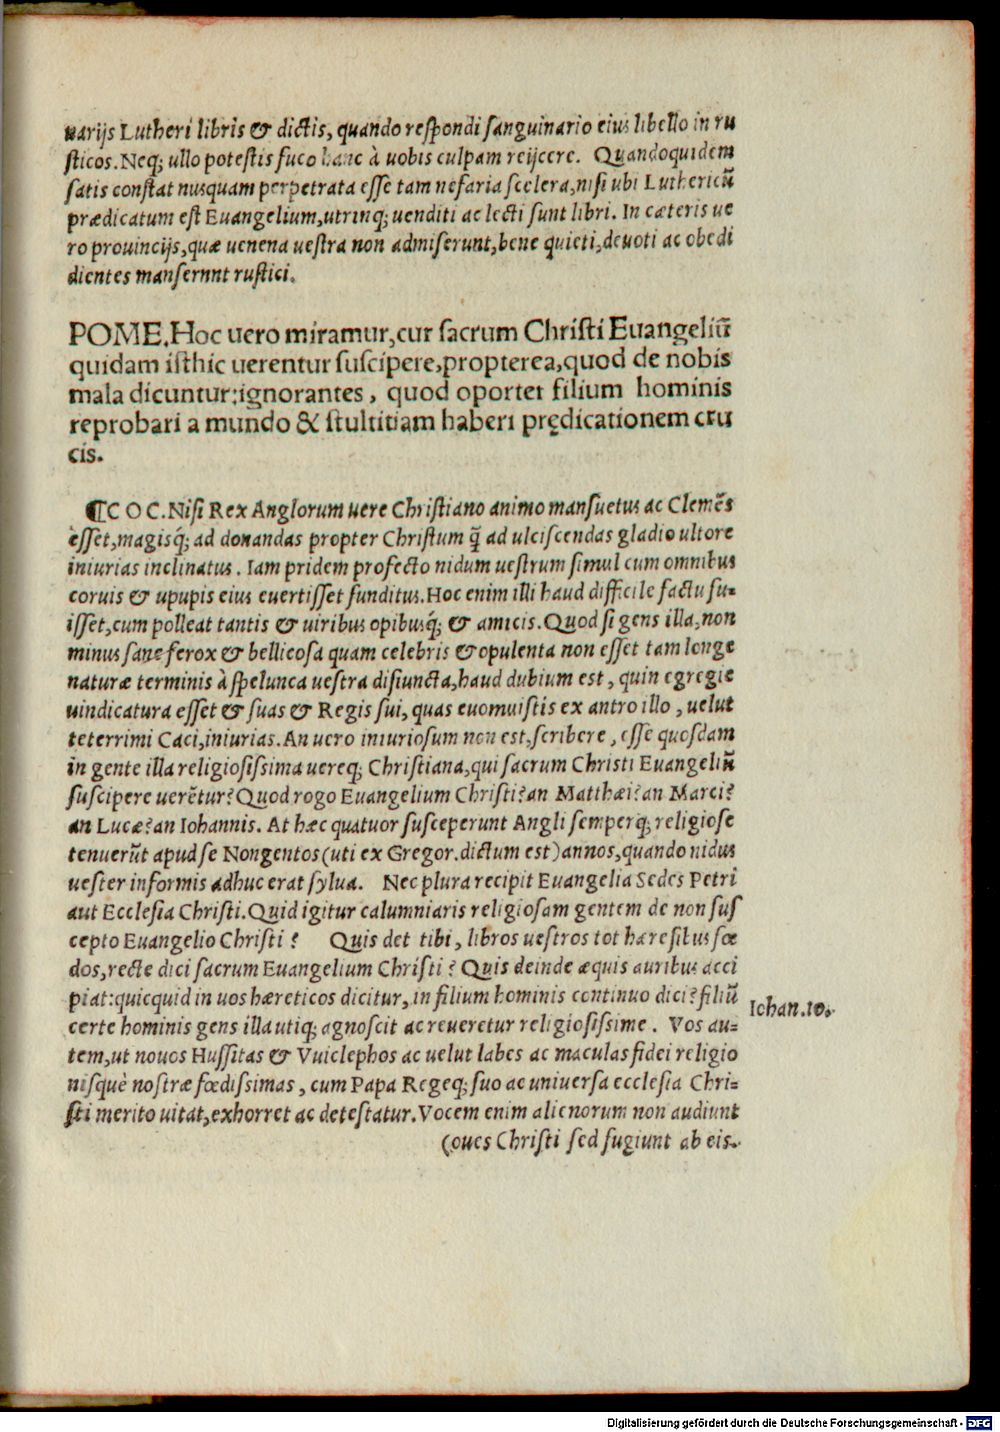 uarijs Lutheri libris & dictis, quando respondi sanguinario eius libello in ru
sticos. Neq; ullo potestis fuco hanc à uobis culpam reijcere. Quandoquidem
satis constat nusquam perpetrata esse tam nefaria scelera, nisi ubi Luthericū
prædicatum est Euangelium, utrinq; uenditi ac lecti sunt libri. In cæteris ue
ro prouincijs, quæ uenena uestra non admiserunt, bene quieti, deuoti ac obedi
dientes mansernnt rustici.
POME. Hoc uero miramur, cur sacrum Christi Euangeliū
quidam isthic uerentur suscipere, propterea, quod de nobis
mala dicuntur: ignorantes, quod oportet filium hominis
reprobari a mundo & stultitiam haberi prędicationem cru
cis.
¶ COC. Nisi Rex Anglorum uere Christiano animo mansuetus ac Clemēs
èsset, magisq́; ad donandas propter Christum q̄ ad ulciscendas gladio ultore
iniurias inclinatus. Iam pridem profecto nidum uestrum simul cum omnibus
coruis & upupis eius euertisset funditus. Hoc enim illi haud difficile factu fu-
isset, cum polleat tantis & uiribus opibusq́; & amicis. Quod si gens illa, non
minus sane ferox & bellicosa quam celebris & opulenta non esset tam longe
naturæ terminis à spelunca uestra disiuncta, haud dubium est, quin egregie
uindicatura esset & suas & Regis sui, quas euomuistis ex antro illo, uelut
teterrimi Caci, iniurias. An uero iniuriosum non est, scribere, esse quosdam
in gente illa religiosissima uereq; Christiana, qui sacrum Christi Euangeliū
suscipere uerētur? Quod rogo Euangelium Christi? an Matthæi? an Marci?
an Lucæ? an Iohannis. At hæc quatuor susceperunt Angli semperq; religiose
tenuerūt apud se Nongentos (uti ex Gregor. dictum est) annos, quando nidus
uester informis adhuc erat sylua. Nec plura recipit Euangelia Sedes Petri
aut Ecclesia Christi. Quid igitur calumniaris religiosam gentem de non sus
cepto Euangelio Christi? Quis det tibi, libros uestros tot hæresibus fœ
dos, recte dici sacrum Euangelium Christi? Quis deinde æquis auribus acci
piat: quicquid in uos hæreticos dicitur, in filium hominis continuo dici? filiū
certe hominis gens illa utiq; agnoscit ac reueretur religiosissime. Vos au-
Iohan. 10.
tem, ut nouos Hussitas & Vuiclephos ac uelut labes ac maculas fidei religio
nisquè nostræ fœdissimas, cum Papa Regeq; suo ac uniuersa ecclesia Chri-
sti merito uitat, exhorret ac detestatur. Vocem enim alienorum non audiunt
(oues Christi sed fugiunt ab eis.
Digitalisierung gefördert durch die Deutsche Forschungsgemeinschaft - DFG